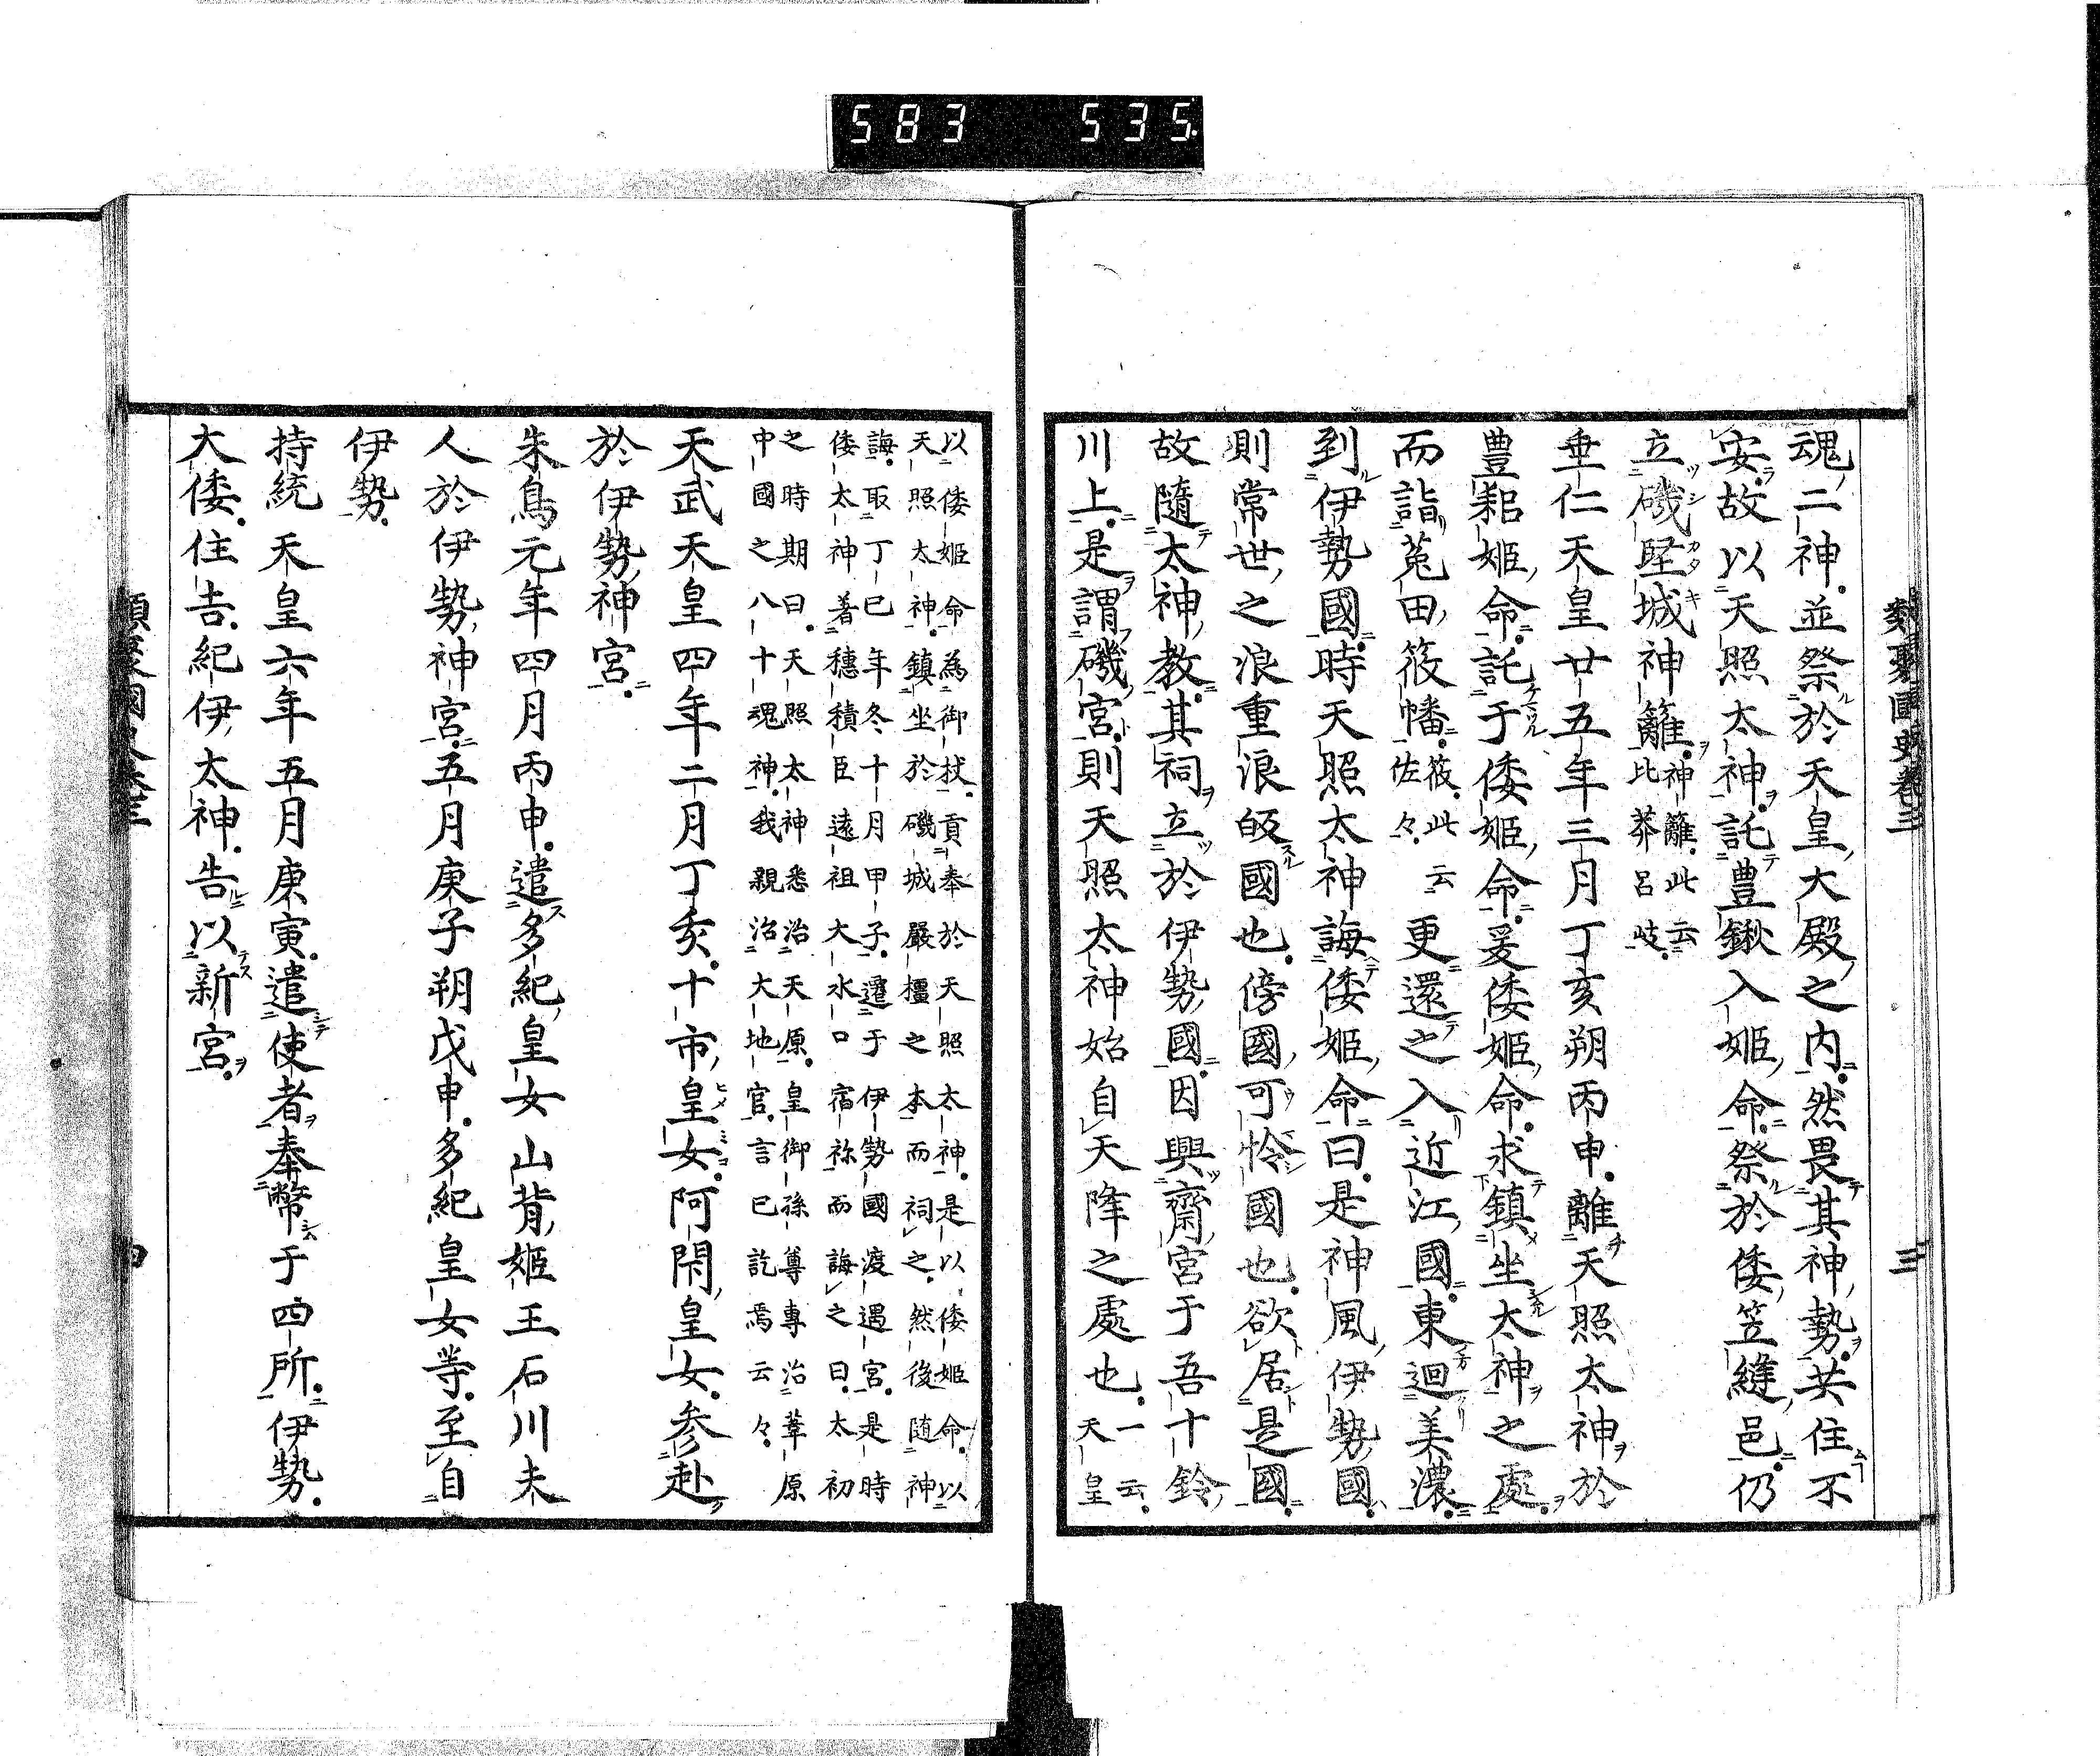 583 535
類聚國史卷三 三
魂二神並祭於天皇大殿之内然畏其神勢共住不
安故以天照太神託豊鍬入姫命祭於倭笠縫邑仍
立磯堅城神籬神籬此云
比莽呂岐
垂仁天皇廿五年三月丁亥朔丙申離天照太神於
豊耜姫命託于倭姫命爰倭姫命求鎮坐太神之處
而詣菟田筱幡筱此云
佐々更還之入近江國東迴美濃
到伊勢國時天照太神誨倭姫命曰是神風伊勢國
則常世之浪重浪皈國也傍國可怜國也欲居是國
故隨太神教其祠立於伊勢國因興齋宮于吾十鈴
川上是謂磯宮則天照太神始自天降之處也一云
天皇
以倭姫命為御杖貢奉於天照太神是以倭姫命以
天照太神鎮坐於磯城嚴橿之本而祠之然後随神
誨取丁巳年冬十月甲子遷于伊勢國渡遇宮是時
倭太神著穗積臣遠祖大水口宿祢而誨之曰太初
之時期曰天照太神悉治天原皇御孫尊專治葦原
中國之八十魂神我親治大地官言已訖焉云々
天武天皇四年二月丁亥十市皇女阿閇皇女参赴
於伊勢神宮
朱鳥元年四月丙申遣多紀皇女山背姫王石川夫
人於伊勢神宮五月庚子朔戊申多紀皇女等至自
伊勢
持統天皇六年五月庚寅遣使者奉幣于四所伊勢
大倭住吉紀伊太神告以新宮
類聚國史卷三 四